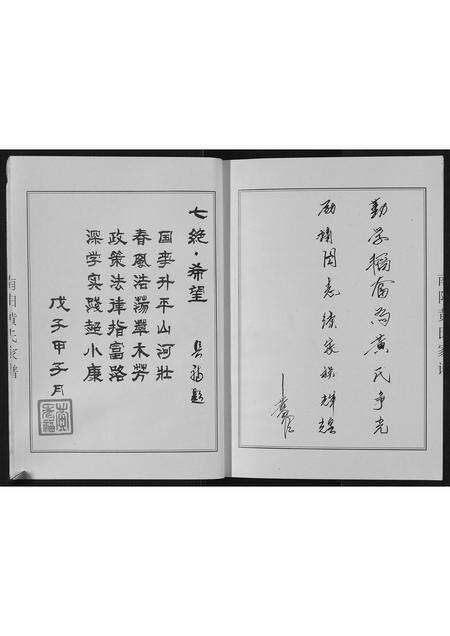 南阳黄氏家谱
勤学犒奋为黄氏争光
励精图志续家族辉煌
七绝·希望
长福题
国泰升平山河壮
春风浩荡草木芳
政策法律指富路
深学实践超小康
戊子甲子月
南阳黄氏家谱